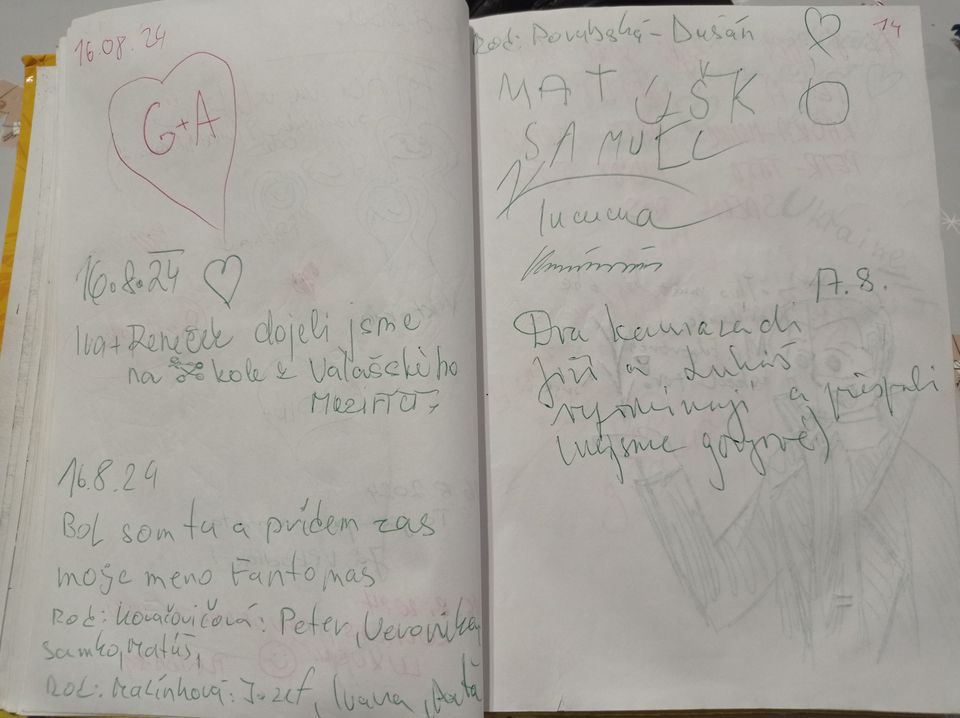 16.08.24
G+A
16.8.24
Iva+Reneček dojeli jsme
na kole z Valašského
Meziříčí,
16.8.24
BOL som tu a prídem zas
moje meno Fantomas
Rod: Kovačovičová: Peter, Veronika,
Samko, Matúš,
Rod: Malinková: Jozef, Ivana,
14
Rod: Dušán
MATÚŠKO
SAMUEL
Ukraine
17.8.
Dva kamarádi
Jiří a Lukáš
vzpomínají a přespali